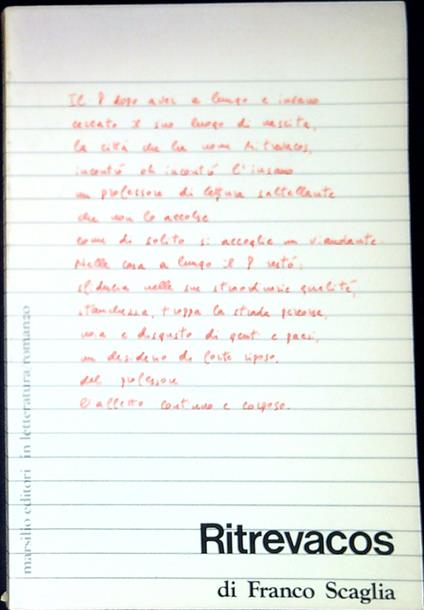 Il P dopo aver a lungo e invano
cercato il suo luogo di nascita,
la città che ha nome Ritrevacos,
incontrò oh incontrò l'insano
un professore di lettura saltellante
che non lo accolse
come di solito si accoglie un viandante.
Nella casa a lungo il P restò:
sfiducia nelle sue straordinarie qualità,
stanchezza, troppa la strada percorsa,
noia e disgusto di genti e paesi,
un desiderio di forte riposo,
del professore
l'affetto continuo e corposo.
marsilio editori in letteratura romanzo
Ritrevacos
di Franco Scaglia